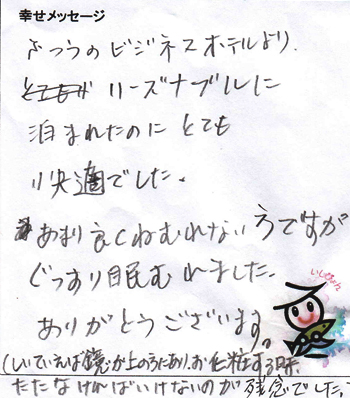 幸せメッセージ
ふつうのビジネスホテルより、
リーズナブルに
泊まれたのにとても
快適でした。
あまり良くねむれないうですが
ぐっすり眠むれました。
ありがとうございます。
(しいていえば鏡が上のうにあり、お化粧する時、
たたなければいけないのが残念でした。